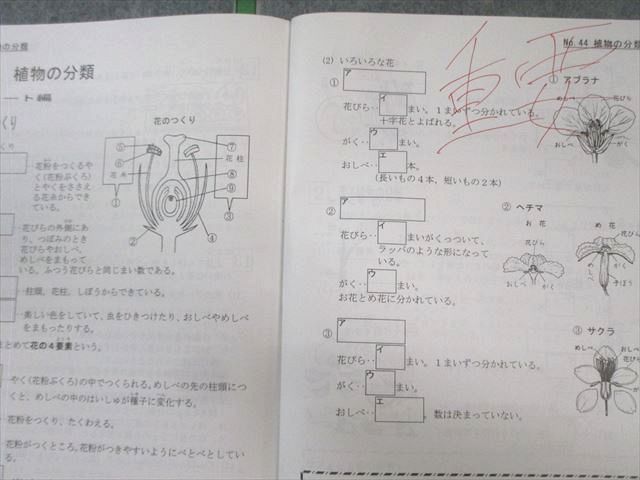 の分類
植物の分類
ート編
くり
花のつくり
花粉をつくるや
く(花粉ぶくろ)
とやくをささえ
る花糸からでき
ている。
⑤
⑥
花糸
①
⑦
花柱
⑧
⑨
③
②
④
花びらの外側にあ
り、つぼみのとき
花びらやおしべ、
めしべをまもって
いる。ふつう花びらと同じまい数である。
柱頭、花柱、しぼうからできている。
美しい色をしていて、虫をひきつけたり、おしべやめしべ
をまもったりする。
まとめて花の4要素という。
やく(花粉ぶくろ)の中でつくられる。めしべの先の柱頭につ
くと、めしべの中のはいしゅが種子に変化する。
花粉をつくり、たくわえる。
花粉がつくところ。花粉がつきやすいようにべとべとしてい
る。
No.44 植物の分類
重要
(2) いろいろな花
① ア
花びら‥イまい。1まいずつ分かれている。
十字花とよばれる。
がく‥ウまい。
おしべ‥エ本。
(長いもの4本、短いもの2本)
① アブラナ
めしべ
花びら
おしべ
がく
② ア
花びら‥イまいがくっついて、
ラッパのような形になって
いる。
がく‥ウまい。
お花とめ花に分かれている。
② ヘチマ
お花
め花
花びら
花びら
おしべ
がく
子ぼう
③ ア
花びら‥イまい。1まいずつ分かれている。
がく‥ウまい。
おしべ‥エ、数は決まっていない。
③ サクラ
めしべ
おしべ
花びら
がく